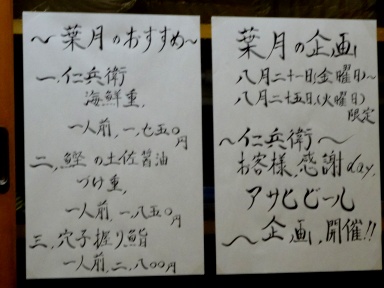 ～葉月のおすすめ～
一、仁兵衛
海鮮重、
一人前、一、七五〇円
二、鰹の土佐醤油
づけ重、
一人前、一、八五〇円
三、穴子握り鮨
一人前、二、八〇〇円
葉月の企画
八月二十一日(金曜日)～
八月二十五日、(火曜日)
限定
～仁兵衛～
お客様、感謝day、
アサヒビール
～企画、開催!!